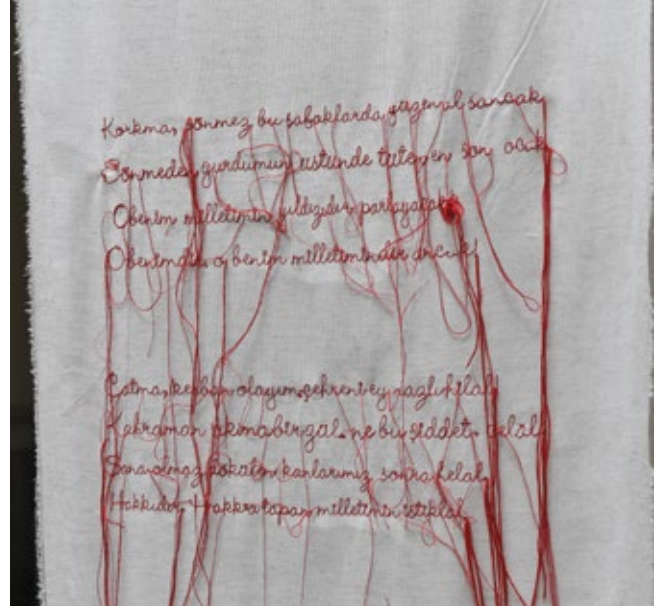 Korkma, sönmez bu şafaklarda yüzen al sancak
Sönmeden yurdumun üstünde tüten en son ocak
O benim milletimin yıldızıdır parlayacak
O benimdir, o benim milletimindir ancak!
Çatma, kurban olayım, çehreni ey nazlı hilal!
Kahraman ırkıma bir gül. ne bu şiddet, celâl?
Sana olmaz dökülen kanlarımız sonra helal,
Hakkıdır, Hakk'a tapan milletimin istiklal